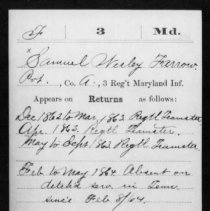 F 3 Md.
Samuel Wesley Farrow
Pvt., Co. A., 3 Reg't Maryland Inf.
Appears on Returns as follows:
Dec 1862 to Mar, 1863 Regtl Teamster
Apr. 1863. Regtl Teamster,
May to Sept 1863 Regtl Teamster.
Feb to May 1864 Absent on
detch'd serv. in Tenn.
since Feb 8/64.